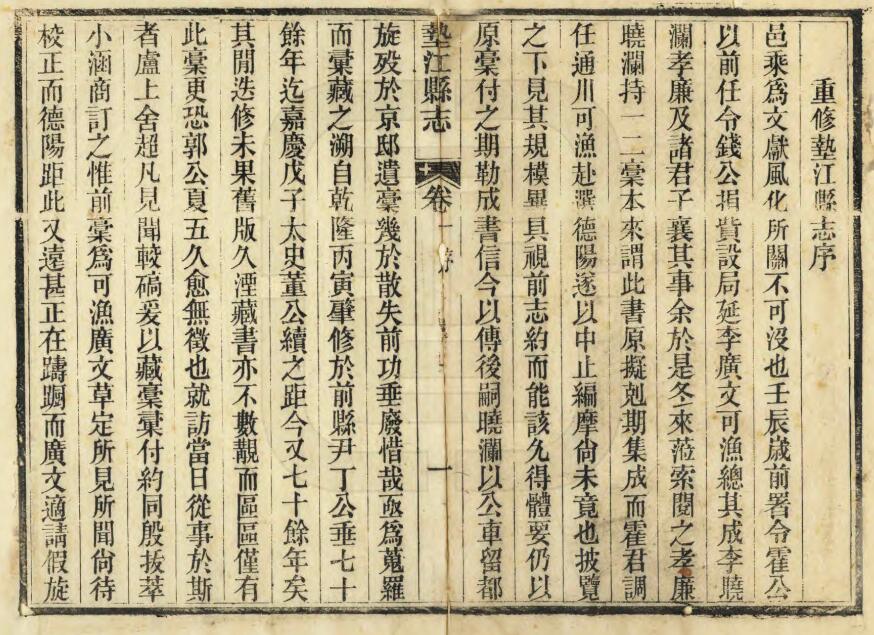 重修墊江縣志序
邑乘爲文獻風化所關不可沒也壬辰歲前署令霍公
以前任令錢公捐貲設局延李廣文可漁總其成李曉
瀾孝廉及諸君子襄其事余於是冬來蒞索閱之孝廉
曉瀾持一二稾本來謂此書原擬剋期集成而霍君調
任通川可漁赴選德陽遂以中止編摩尙未竟也披覽
之下見其規模畧具視前志約而能該允得體要仍以
原稾付之期勒成書信今以傳後嗣曉瀾以公車留都
墊江縣志 卷一序 一
旋歿於京邸遺稾幾於散失前功垂廢惜哉亟爲蒐羅
而彙藏之溯自乾隆丙寅肇修於前縣尹丁公垂七十
餘年迄嘉慶戊子太史董公續之距今又七十餘年矣
其閒迭修未果舊版久湮藏書亦不數覯而區區僅有
此稾更恐郭公夏五久愈無徵也就訪當日從事於斯
者盧上舍超凡見聞較碻爰以藏稾彙付約同殷拔萃
小涵商訂之惟前稾爲可漁廣文草定所見所聞尙待
校正而德陽距此又遠甚正在躊躕而廣文適請假旋